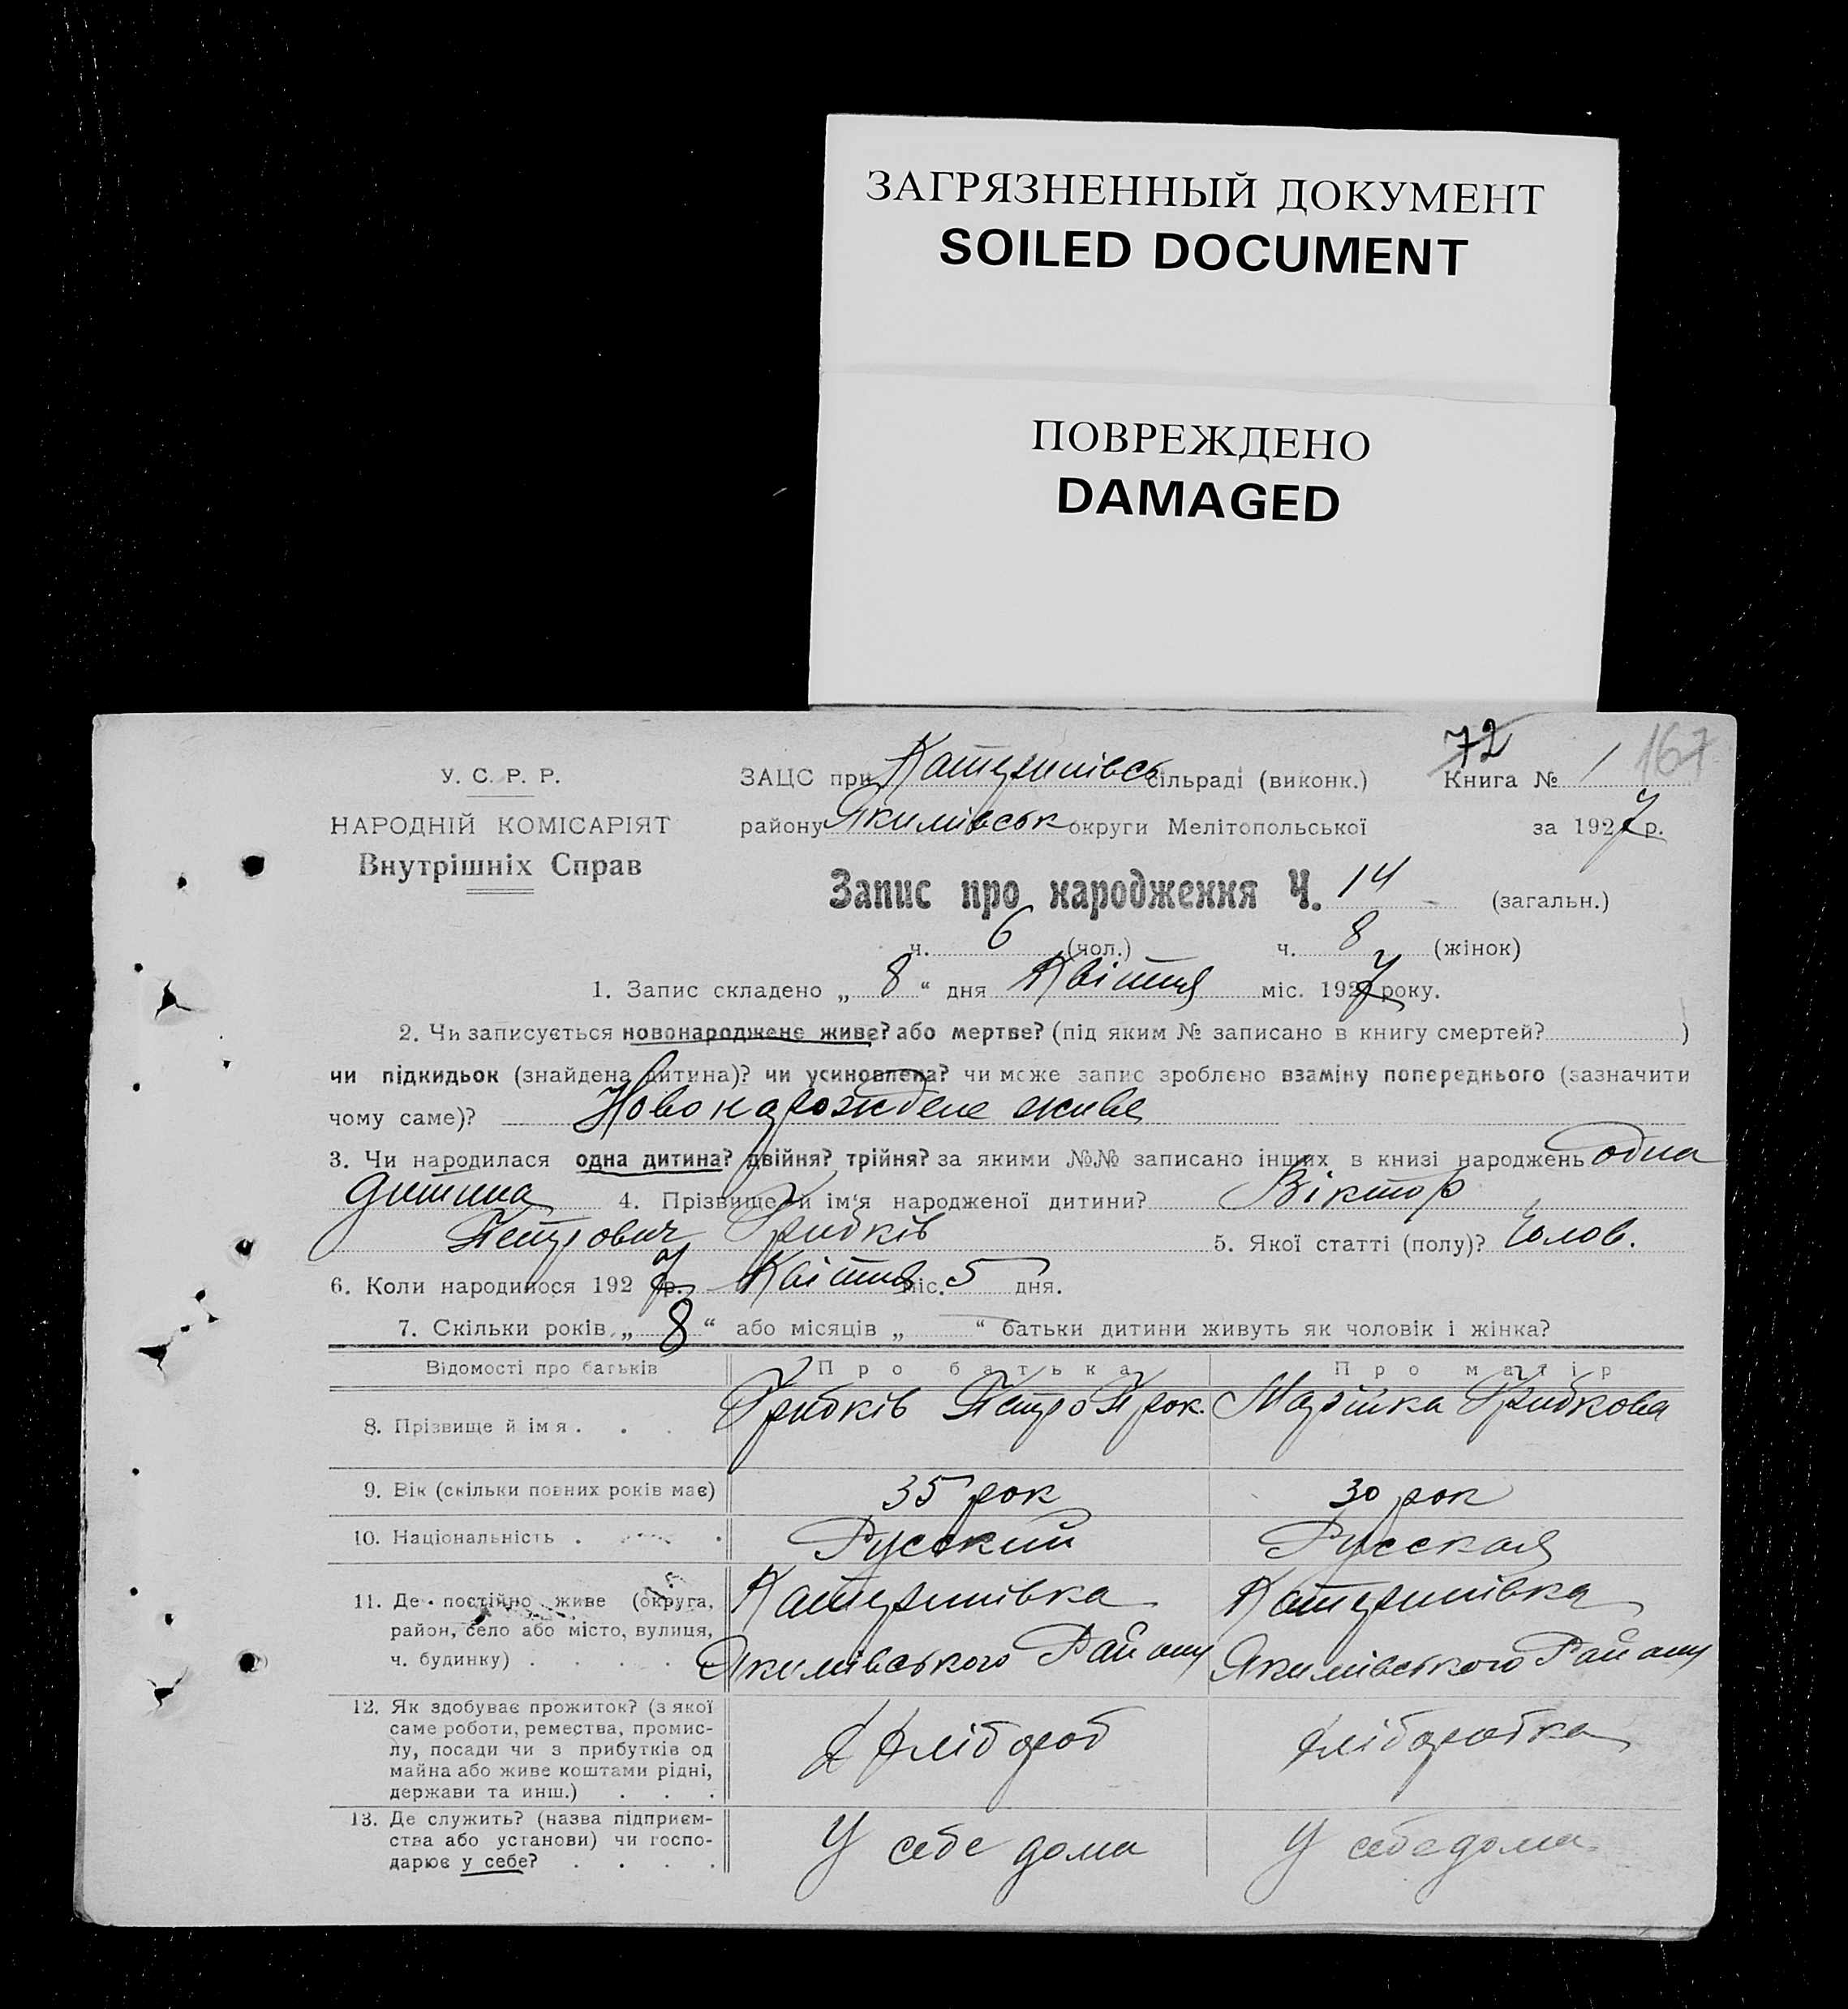 ЗАГРЯЗНЕННЫЙ ДОКУМЕНТ
SOILED DOCUMENT
ПОВРЕЖДЕНО
DAMAGED
72 167
У. С. Р. Р.
НАРОДНІЙ КОМІСАРІЯТ
Внутрішніх Справ
ЗАЦС при Катеринівсь сільраді (виконк.) Книга № 1
району Якимівськ округи Мелітопольської за 1927 р.
Запис про народження Ч. 14 (загальн.)
ч. 6 (чол.) ч. 8 (жінок)
1. Запис складено „ 8 “ дня Квітня міс. 1927 року.
2. Чи записується новонароджене живе? або мертве? (під яким № записано в книгу смертей? )
чи підкидьок (знайдена дитина)? чи усиновлена? чи може запис зроблено взаміну попереднього (зазначити
чому саме)? Новонарождене живе
3. Чи народилася одна дитина? двійня? трійня? за якими №№ записано інших в книзі народжень одна
дитина 4. Прізвище й ім‘я народженої дитини? Віктор
Петрович Грибків 5. Якої статті (полу)? Чолов.
6. Коли народилося 1927 р. Квітня міс. 5 дня.
7. Скільки років „ 8 “ або місяців „ “ батьки дитини живуть як чоловік і жінка?
Відомості про батьків Про батька Про матір
8. Прізвище й імя . . . . Грибків Петро Прок. Марійка Грибкова
9. Вік (скільки повних років має) 35 рок 30 рок
10. Національність . . Русский Русская
11. Де постійно живе (округа, Катеринівка Катеринівка
район, село або місто, вулиця, Якимівського Району Якимівського Району
ч. будинку) . . . .
12. Як здобуває прожиток? (з якої
саме роботи, ремества, промис-
лу, посади чи з прибутків од Хлібороб хліборобка
майна або живе коштами рідні,
держави та инш.) . . .
13. Де служить? (назва підприєм-
ства або установи) чи госпо- У себе дома У себе дома.
дарює у себе? . . . .